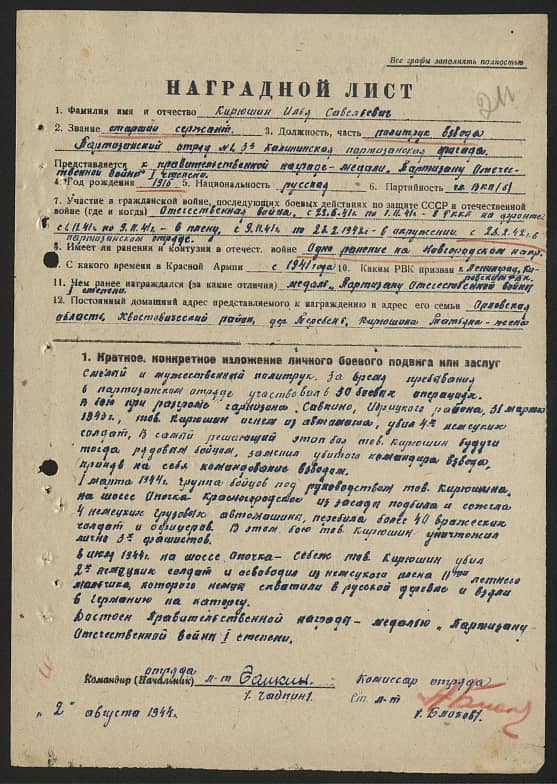 Все графы заполнять полностью
НАГРАДНОЙ ЛИСТ
1. Фамилия имя и отчество Кирюшин Илья Савельевич
2. Звание старший сержант 3. Должность, часть политрук взвода
Партизанский отряд №2, 3й калининская партизанская бригада.
Представляется к правительственной награде-медали „Партизану Отечес-
твенной войны" I степени.
4. Год рождения 1910 5. Национальность русская 6. Партийность ВКП(б)
7. Участие в гражданской войне, последующих боевых действиях по защите СССР и отечественной
войне (где и когда) Отечественная война. с 22.6.41г. по 1.11.41г. - в РККА на фронте
с 1.11.41г по 9.11.41г - в плену, с 9.11.41г по 22.2.1942г - в окружении. с 23.2.42г. в
партизанском отряде.
8. Имеет ли ранения и контузия в отечест. войне Одно ранение на Новгородском напр.
9. С какого времени в Красной Армии с 1941 года 10. Каким РВК призван г. Ленинград, Ки-
ровским РВК.
11. Чем ранее награждался (за какие отличия) медаль „Партизану Отечественной войны"
I степени.
12. Постоянный домашний адрес представляемого к награждению и адрес его семьи Орловская
область, Хвостовический район, дер. Теребень, Кирюшина Татьяна - жена
1. Краткое, конкретное изложение личного боевого подвига или заслуг
Смелый и мужественный политрук. За время пребывания
в партизанском отряде участвовал в 30 боевых операциях.
В бою при разгроме гарнизона Савкино, Идрицкого района, 31 марта
1943г., тов. Кирюшин огнем из автомата, убил 4х немецких
солдат, В самый решающий этап боя тов. Кирюшин будучи
тогда рядовым бойцом, заменил убитого командира взвода,
приняв на себя командование взводом.
1 марта 1944г. группа бойцов под руководством тов. Кирюшина.
на шоссе Опочка Красногородское из засады подбила и сожгла
4 немецких грузовых автомашины, перебила более 40 вражеских
солдат и офицеров. В этом бою тов. Кирюшин уничтожил
лично 3х фашистов.
В июле 1944г. на шоссе Опочка - Себеж тов. Кирюшин убил
2х немецких солдат и освободил из немецкого плена 11ти летнего
мальчика, которого немцы схватили в русской деревне и взяли
в Германию на каторгу.
Достоен Правительственной награды - медалью „Партизану
Отечественной Войны I степени.
отряда
Командир (Начальник) л-т
Комиссар отряда
Ст. л-т
„2" августа 1944г.